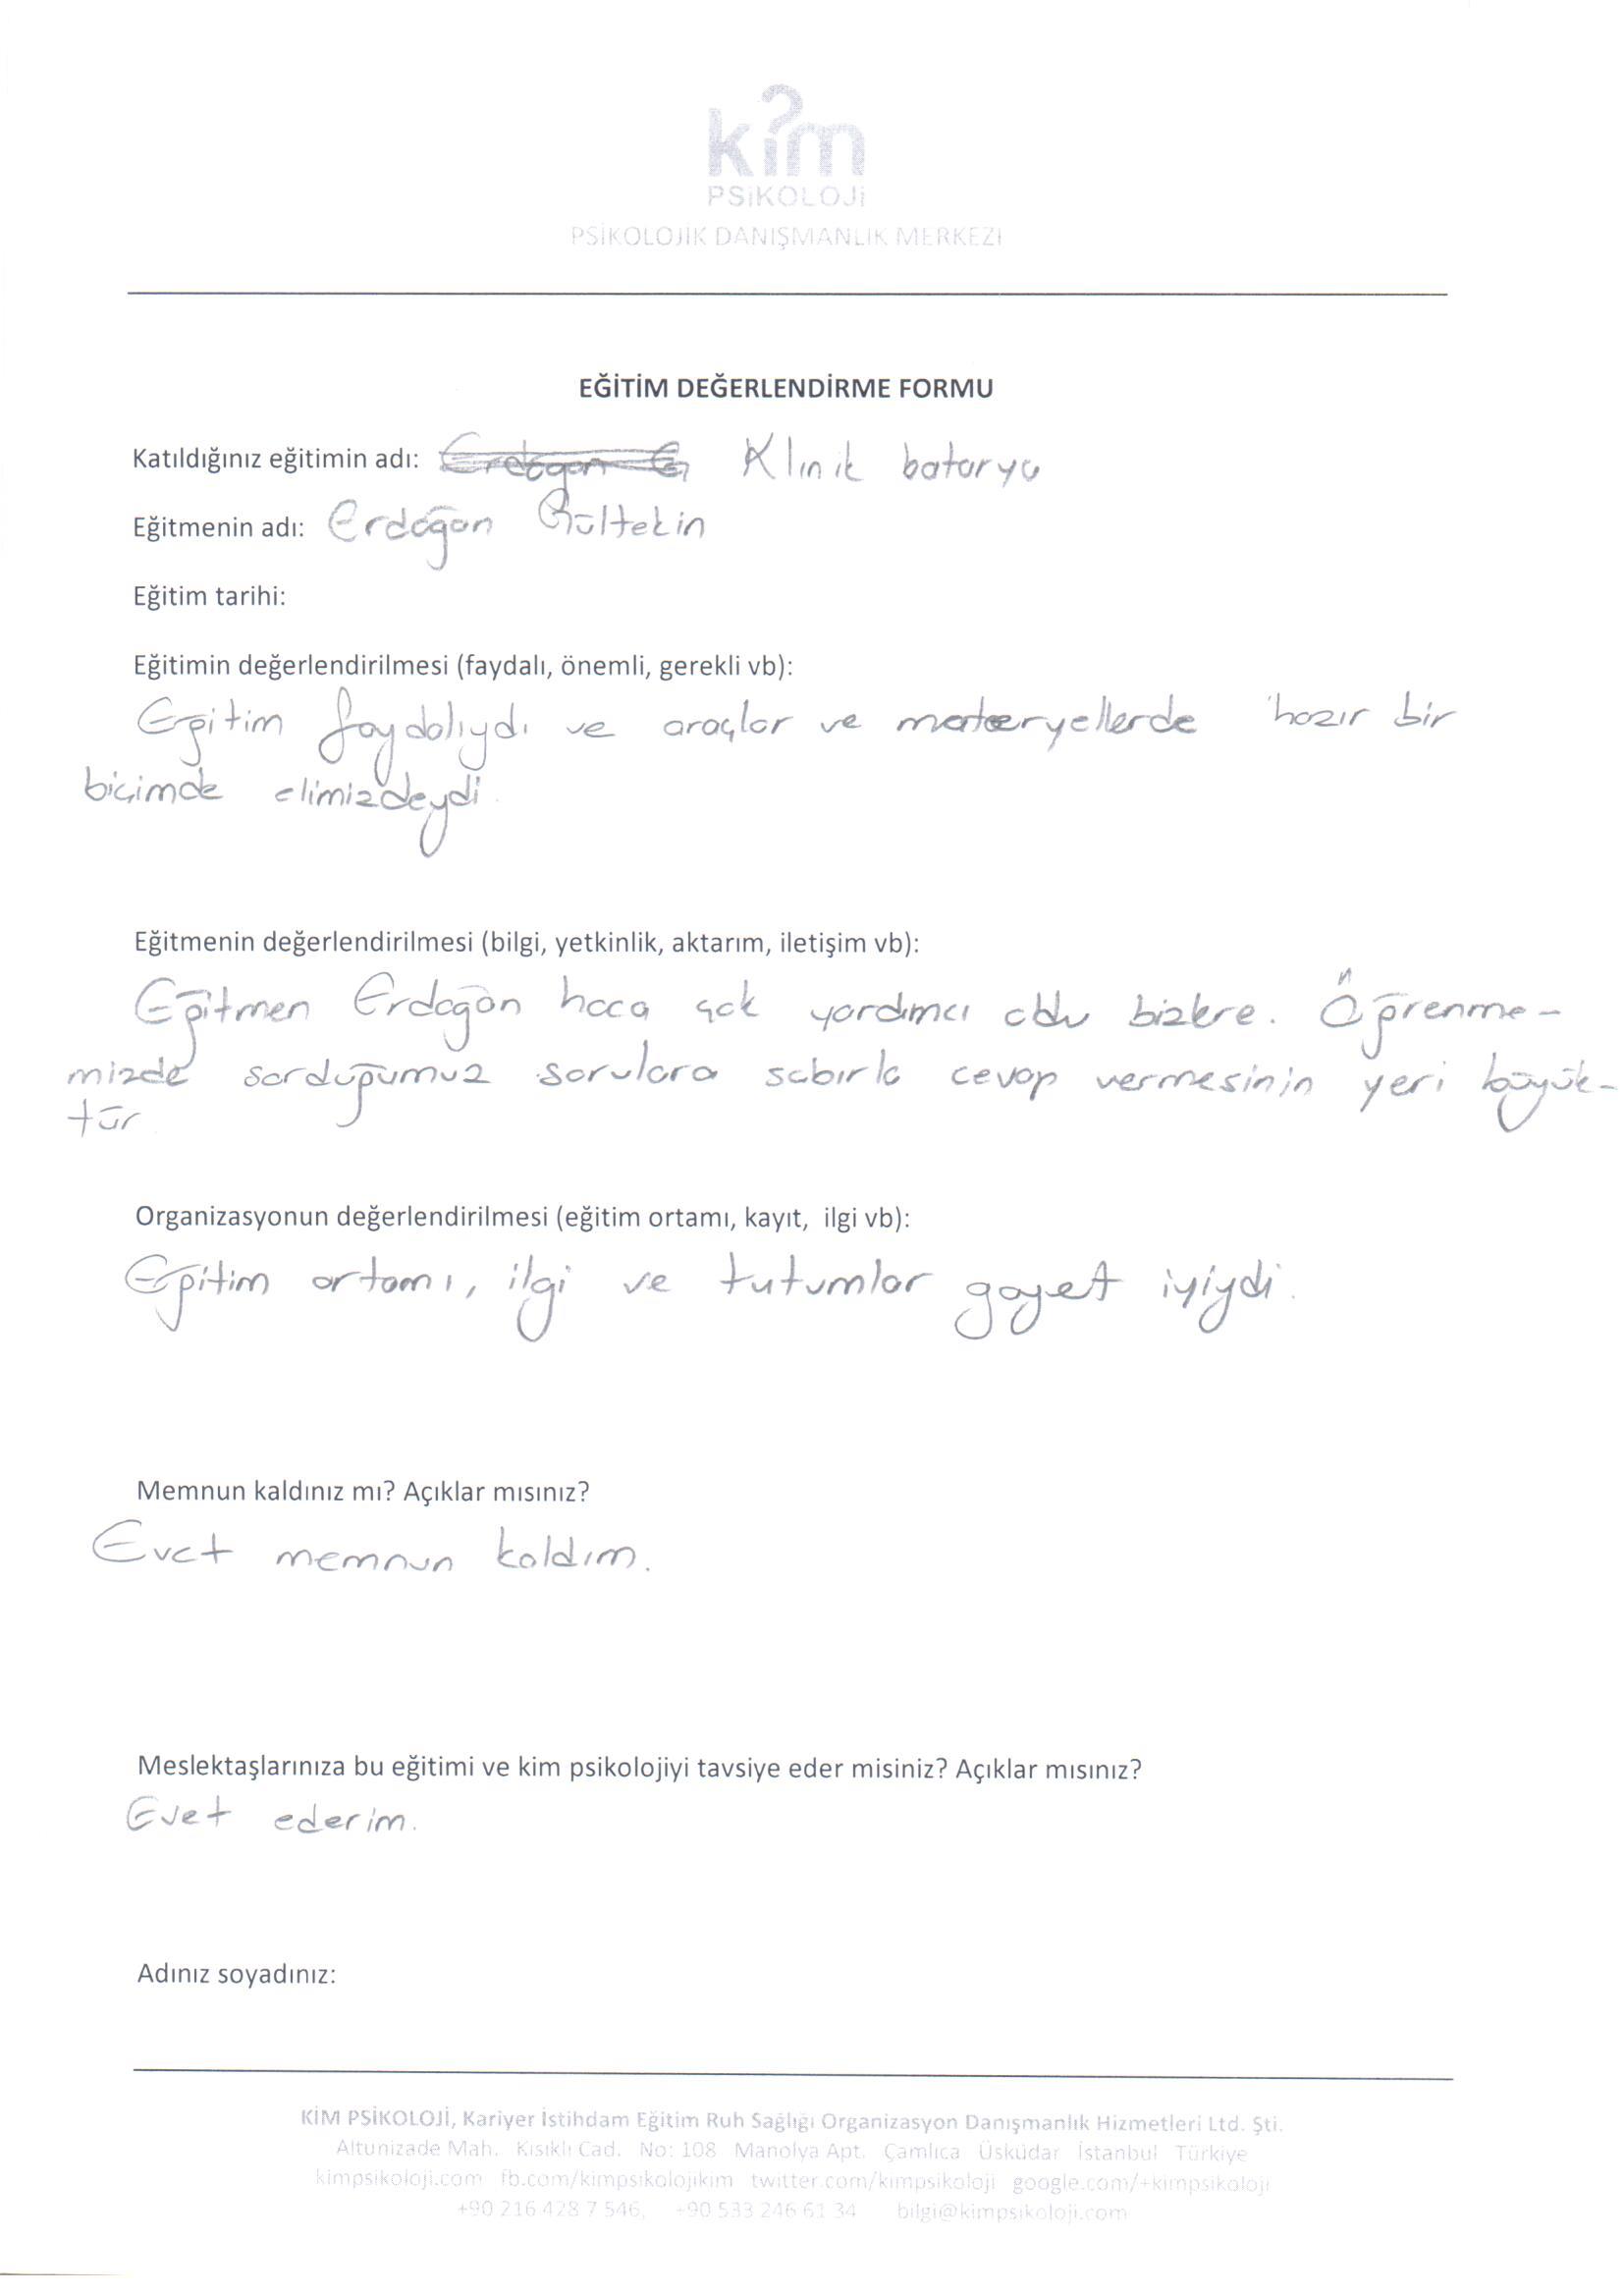 kim
PSiKOLOJi
PSİKOLOJİK DANIŞMANLIK MERKEZİ
EĞİTİM DEĞERLENDİRME FORMU
Katıldığınız eğitimin adı: Erdogan G Klinik batarya
Eğitmenin adı: Erdoğan Gültekin
Eğitim tarihi:
Eğitimin değerlendirilmesi (faydalı, önemli, gerekli vb):
Eğitim faydalıydı ve araçlar ve materyellerde hazır bir
biçimde elimizdeydi.
Eğitmenin değerlendirilmesi (bilgi, yetkinlik, aktarım, iletişim vb):
Eğitmen Erdoğan hoca çok yardımcı oldu bizlere. Öğrenme-
mizde sorduğumuz sorulara sabırla cevap vermesinin yeri büyük-
tür
Organizasyonun değerlendirilmesi (eğitim ortamı, kayıt, ilgi vb):
Eğitim ortamı, ilgi ve tutumlar gayet iyiydi.
Memnun kaldınız mı? Açıklar mısınız?
Evet memnun kaldım.
Meslektaşlarınıza bu eğitimi ve kim psikolojiyi tavsiye eder misiniz? Açıklar mısınız?
Evet ederim.
Adınız soyadınız:
KİM PSİKOLOJİ, Kariyer İstihdam Eğitim Ruh Sağlığı Organizasyon Danışmanlık Hizmetleri Ltd. Şti.
Altunizade Mah. Kısıklı Cad. No: 108 Manolya Apt. Çamlıca Üsküdar İstanbul Türkiye
kimpsikoloji.com fb.com/kimpsikolojikim twitter.com/kimpsikoloji google.com/+kimpsikoloji
+90 216 428 7 546, +90 533 246 61 34 bilgi@kimpsikoloji.com